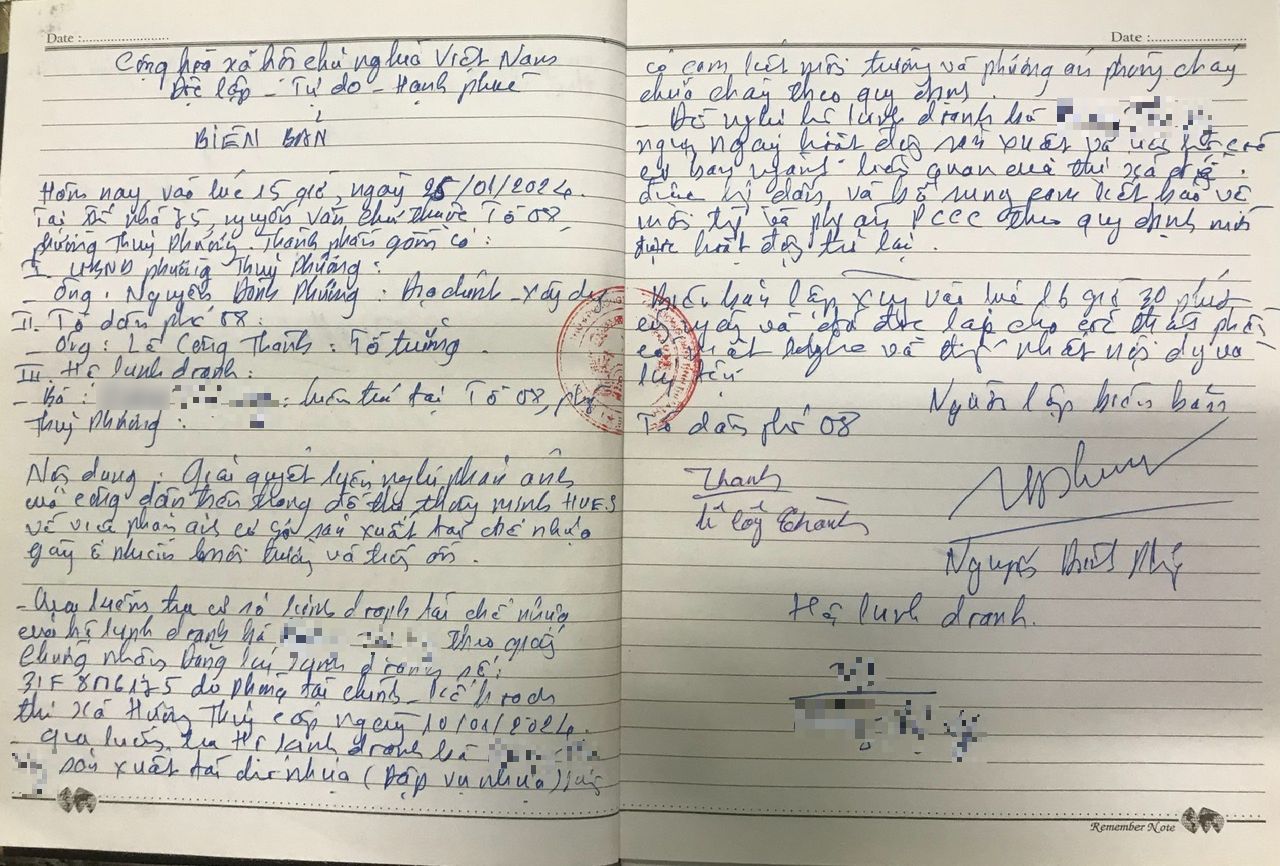 Date :
Cộng hoà xã hội chủ nghĩa Việt Nam
Độc lập - Tự do - Hạnh phúc
BIÊN BẢN
Hôm nay vào lúc 15 giờ, ngày 25/01/2024.
Tại số nhà 75, Nguyễn Văn Chư thuộc Tổ 08,
phường Thuỷ Phương. Thành phần gồm có:
I. UBND phường Thuỷ Phương:
- Ông. Nguyễn Đình Phương: Địa chính - Xây dựng
II. Tổ dân phố 08:
- Ông: Lê Công Thành: Tổ trưởng.
III. Hộ kinh doanh:
- Bà: : hiện trú tại Tổ 08, phường
Thuỷ Phương.
Nội dung: Giải quyết kiến nghị phản ánh
của công dân trên trang đô thị thông minh HUES
về việc phản ánh cơ sở sản xuất tái chế nhựa
gây ô nhiễm môi trường và tiếng ồn.
- Qua kiểm tra cơ sở kinh doanh tái chế nhựa
của hộ kinh doanh bà theo giấy
chứng nhận đăng ký kinh doanh số:
31F 8006175 do phòng tài chính - kế hoạch
thị xã Hương Thuỷ cấp ngày 10/01/2024.
- Qua kiểm tra Hộ kinh doanh bà
sản xuất tái chế nhựa (Dập vụ nhựa)
Date :
có cam kết môi trường và phương án phòng cháy
chữa cháy theo quy định.
- Đề nghị hộ kinh doanh bà
ngừng ngay hoạt động sản xuất và
cơ ban ngành liên quan của thị xã để
được hướng dẫn và bổ sung cam kết bảo vệ
môi trường và phương án PCCC theo quy định mới
được hoạt động trở lại.
Biên bản lập xong vào lúc 16 giờ 30 phút
cùng ngày và đã đọc lại cho các thành phần
có mặt nghe và thống nhất nội dung và
ký tên.
Người lập biên bản
Tổ dân phố 08
Thanh
Lê Công Thành
Nguyễn Đình Phương
Hộ kinh doanh.
Remember Note